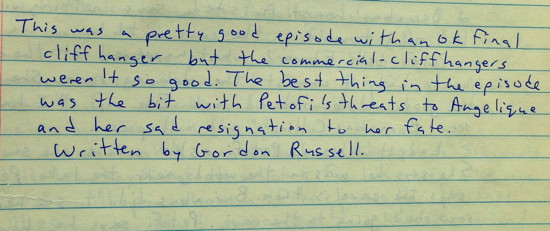 This was a pretty good episode with an ok final
cliffhanger but the commercial-cliffhangers
weren't so good. The best thing in the episode
was the bit with Petofi's threats to Angelique
and her sad resignation to her fate.
Written by Gordon Russell.